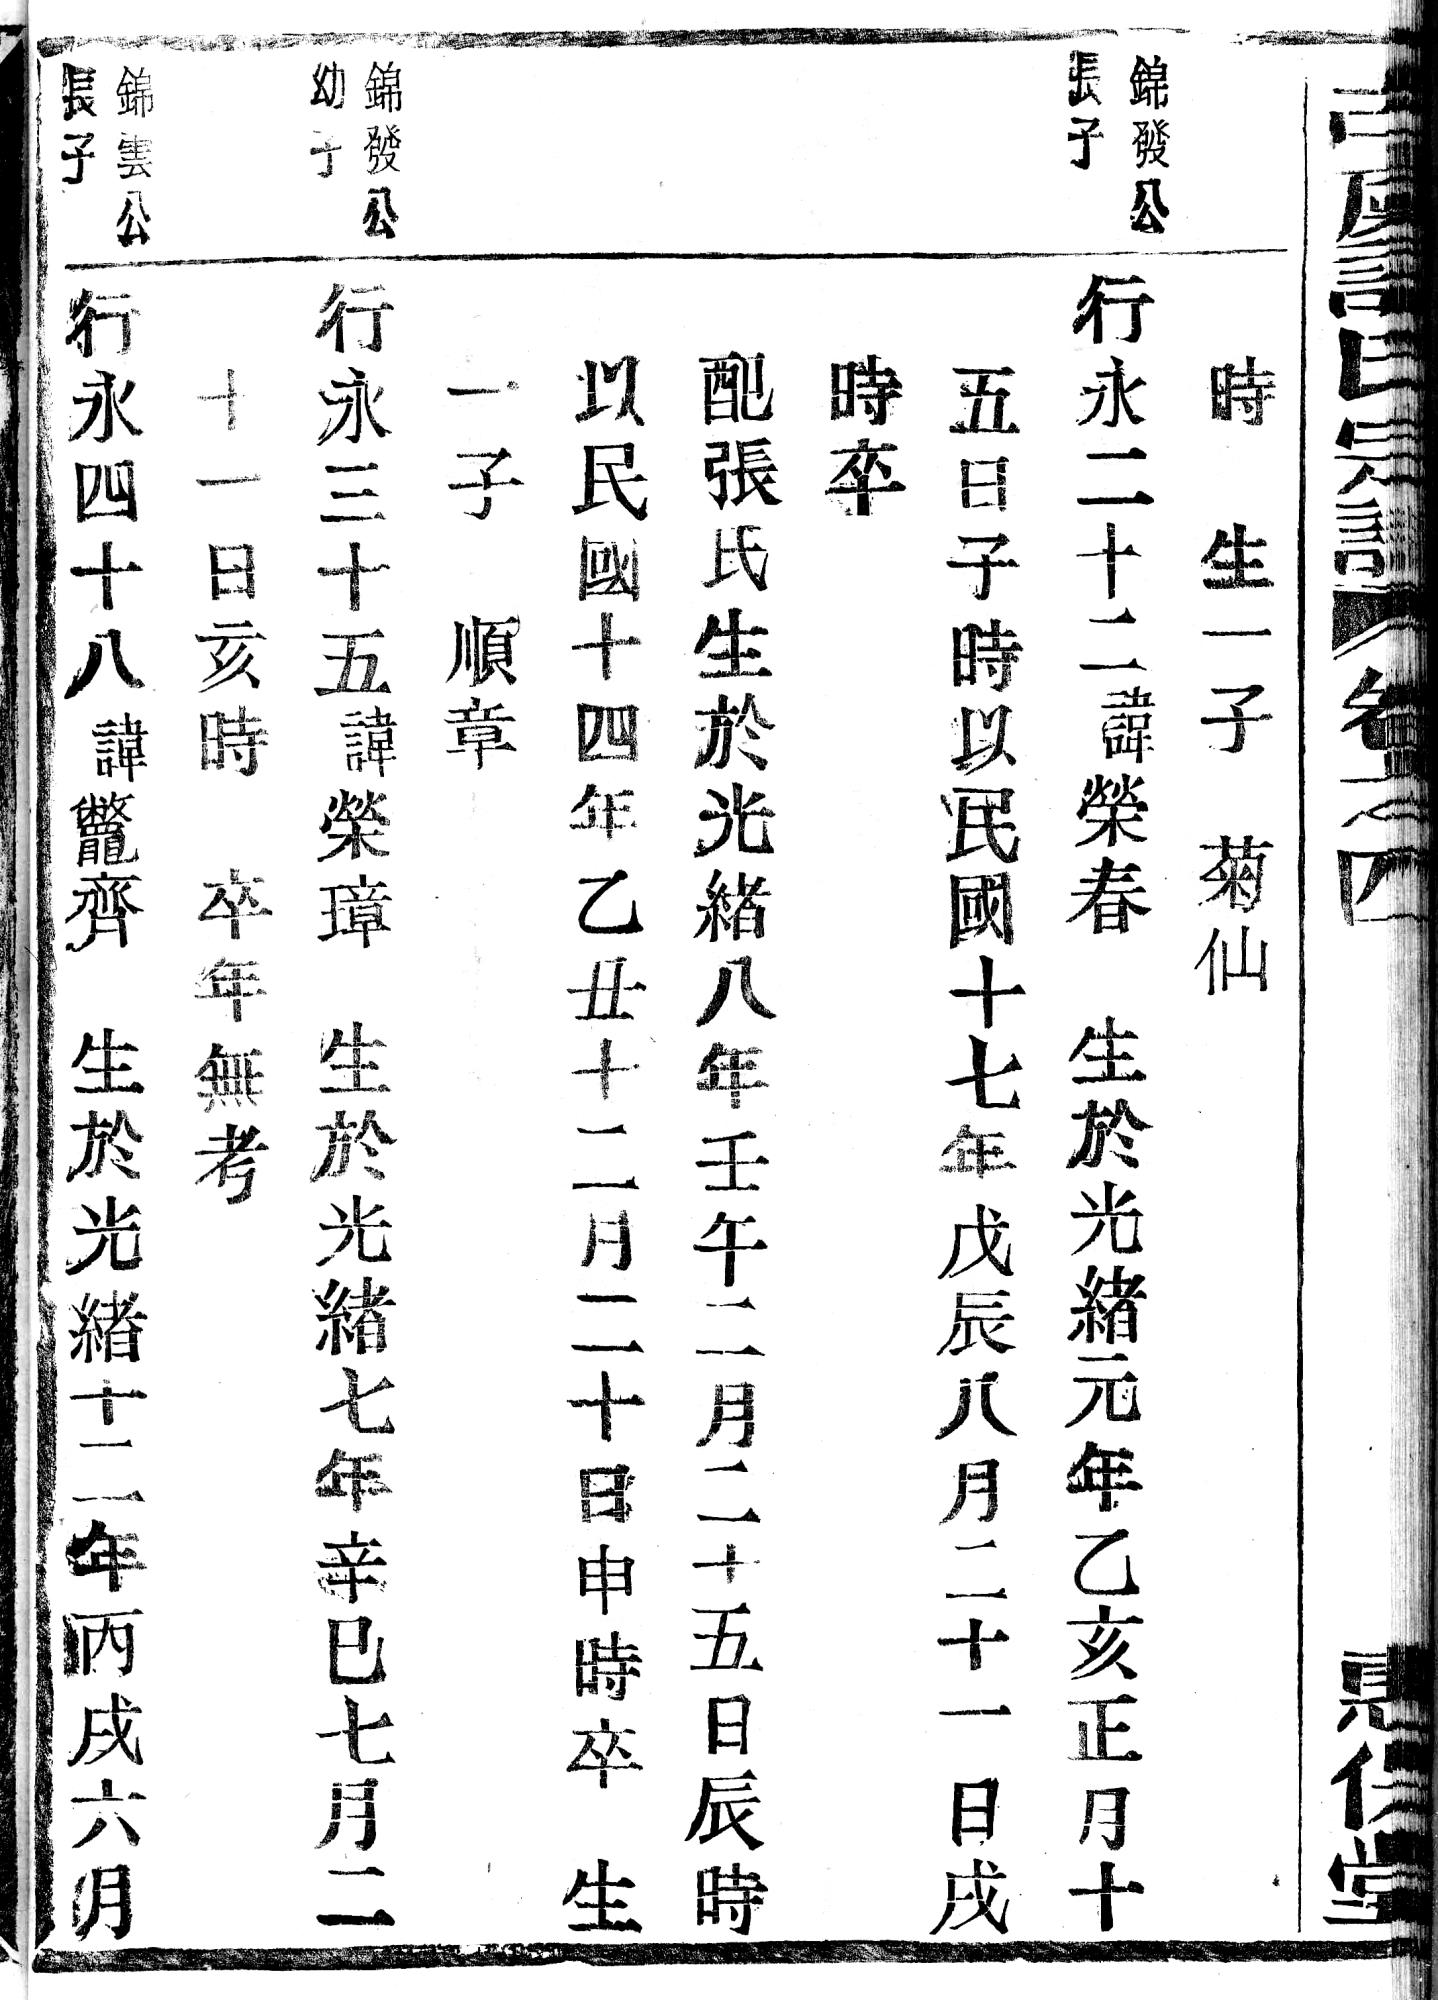 氏宗譜 卷之四 惠仁堂
時 生一子 菊仙
錦發公
長子
行永二十二諱榮春 生於光緒元年乙亥正月十
五日子時以民國十七年戊辰八月二十一日戌
時卒
配張氏生於光緒八年壬午二月二十五日辰時
以民國十四年乙丑十二月二十日申時卒 生
一子 順章
錦發公
幼子
行永三十五諱榮璋 生於光緒七年辛巳七月二
十一日亥時 卒年無考
錦雲公
長子
行永四十八諱齊 生於光緒十二年丙戌六月